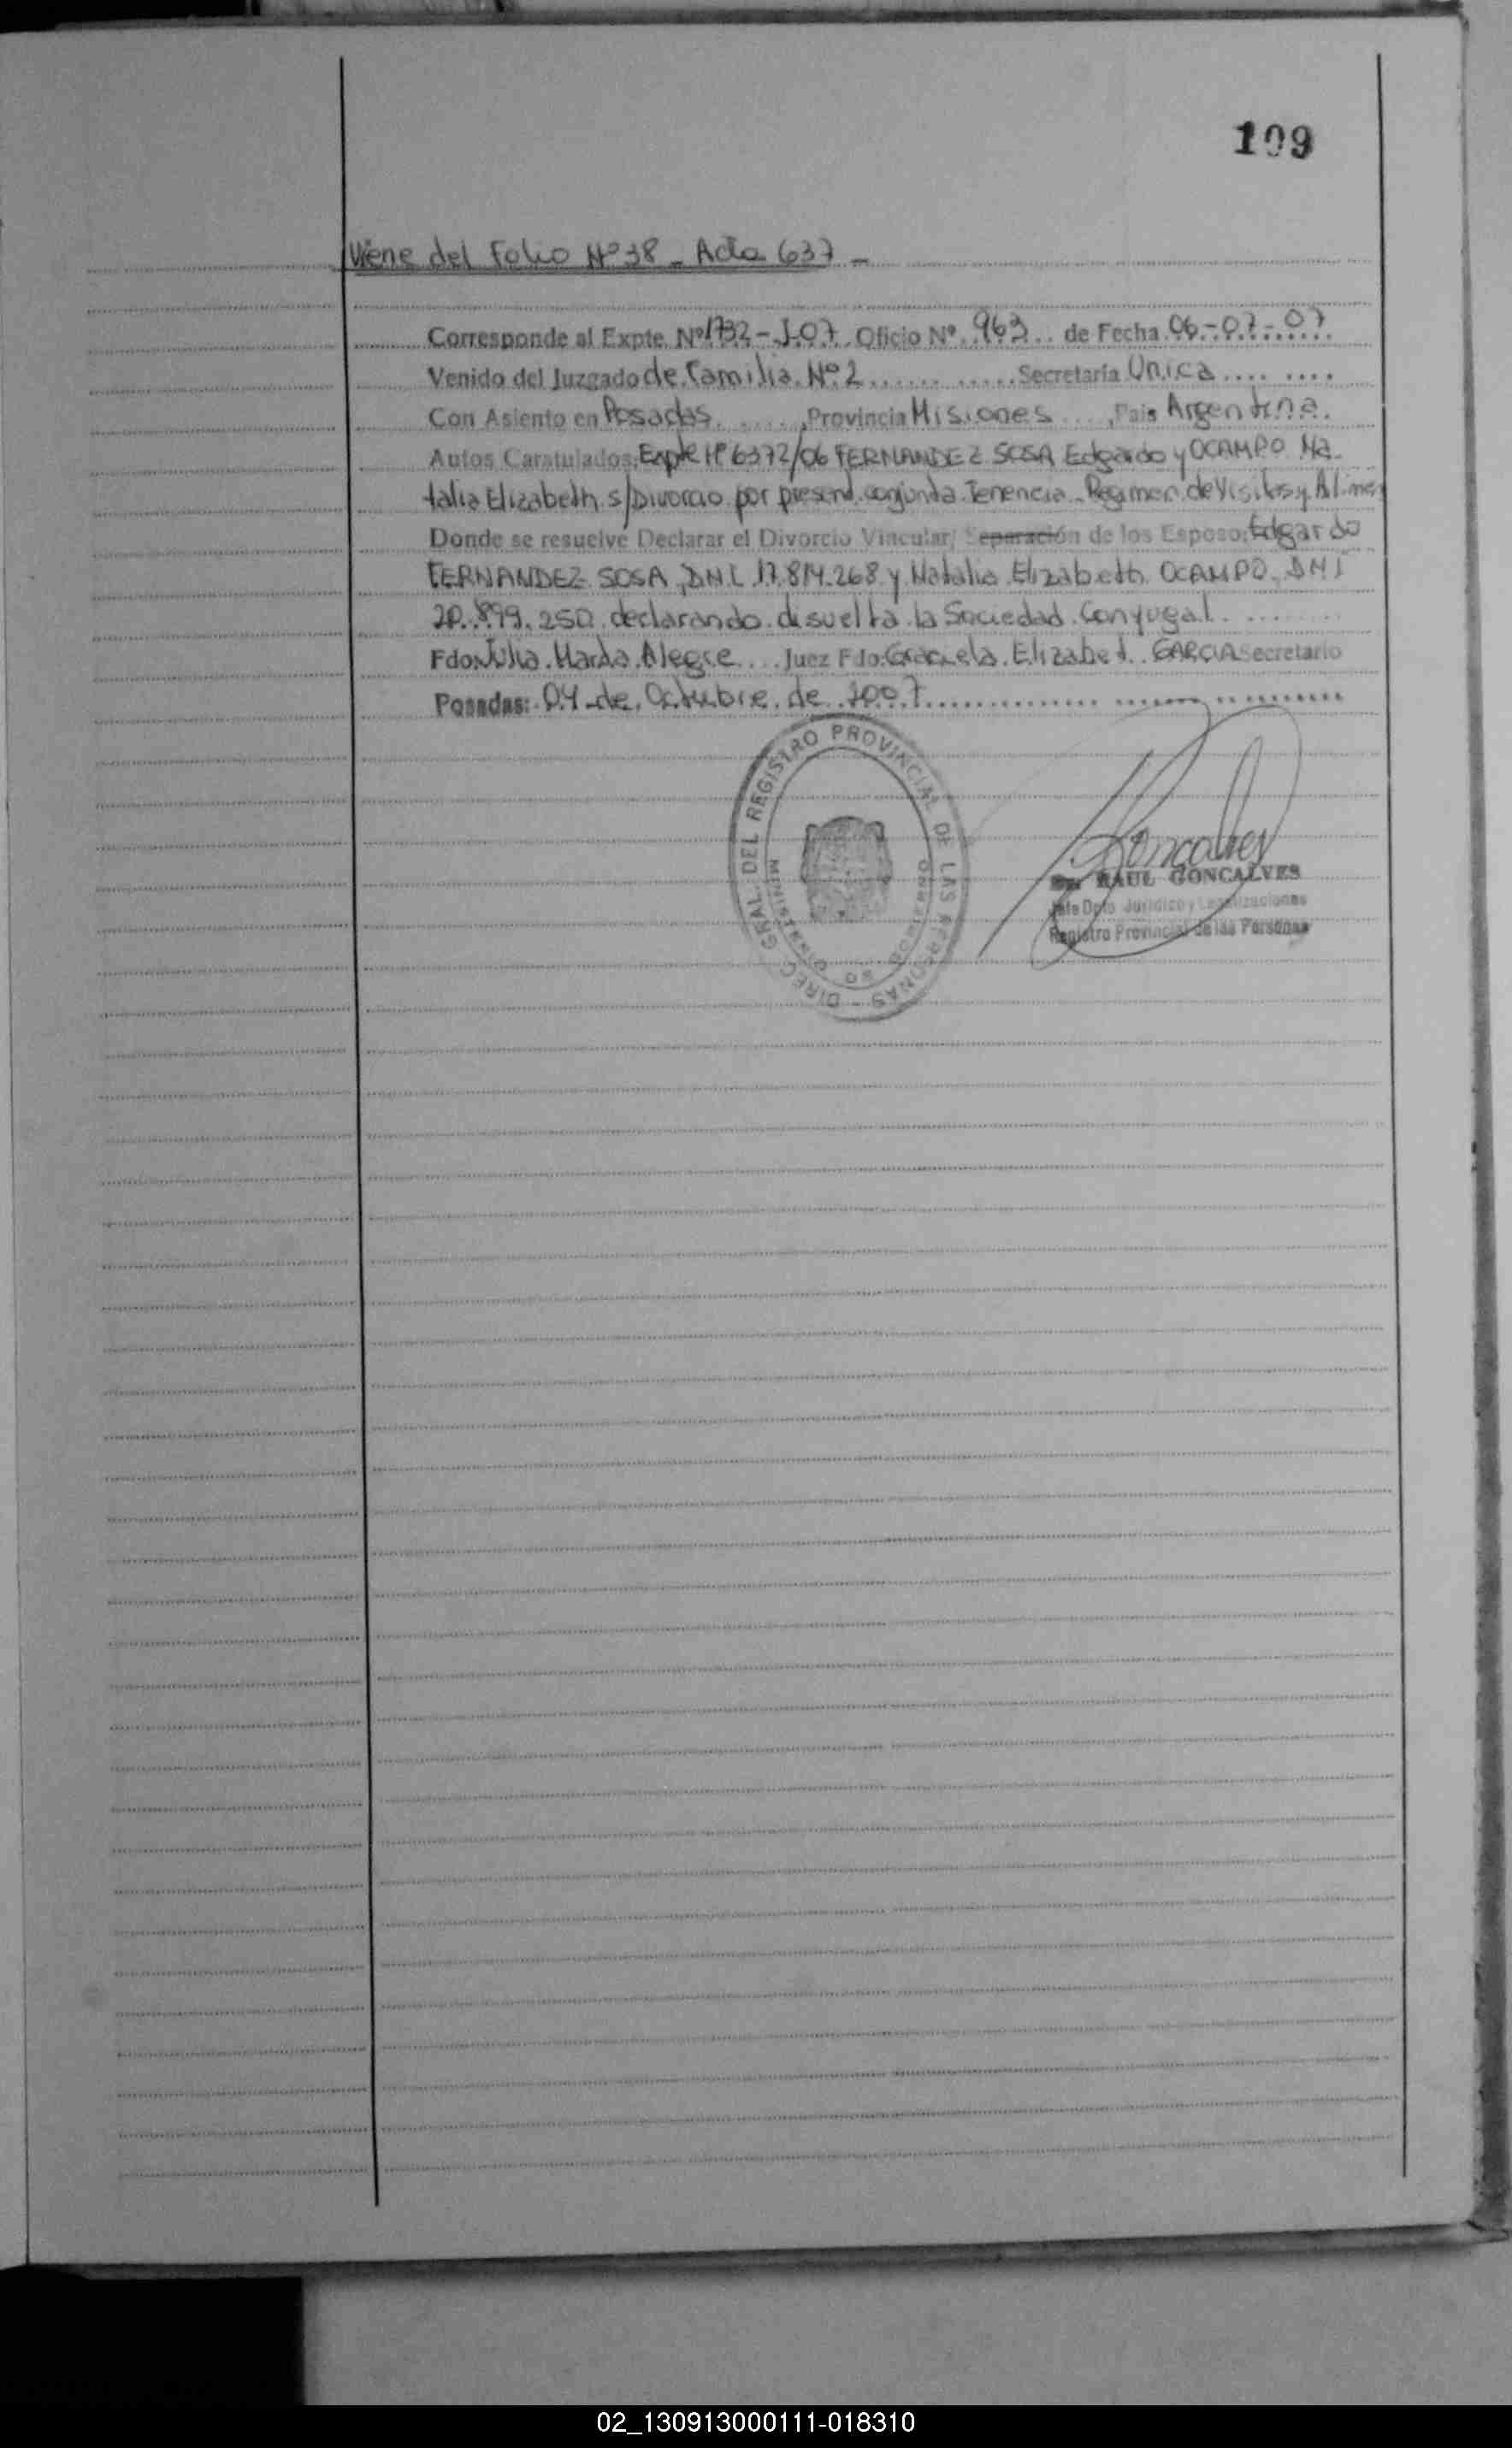 109
Viene del Folio Nº 38 - Acta 637 -
Corresponde al Expte. Nº 1732-J-07. Oficio Nº. 963... de Fecha. 06-07-07
Venido del Juzgado de Familia. Nº 2 ............ Secretaría Unica .... ....
Con Asiento en Posadas ......, Provincia Misiones ...., Pais Argentina.
Autos Caratulados: Expte Nº 6372/06 FERNANDEZ SOSA Edgardo y OCAMPO Na-
talia Elizabeth s/Divorcio por present. conjunta. Tenencia - Regimen de Visitas y Alimen
Donde se resuelve Declarar el Divorcio Vincular/ Separación de los Esposo: Edgardo
FERNANDEZ SOSA, D.N.I. 17.814.268 y Natalia Elizabeth OCAMPO, DNI
20.899.250 declarando disuelta la Sociedad Conyugal.......
Fdo: Julia Marta Alegre .... Juez Fdo: Graciela Elizabet. GARCIA Secretario
Posadas: 04 de Octubre de 2007 ...............
DIREC. GRAL. DEL REGISTRO PROVINCIAL DE LAS PERSONAS -
MINISTERIO DE GOBIERNO
Goncalves
RAUL GONCALVES
Jefe Dpto Jurídico y Legalizaciones
Registro Provincial de las Personas
02_130913000111-018310